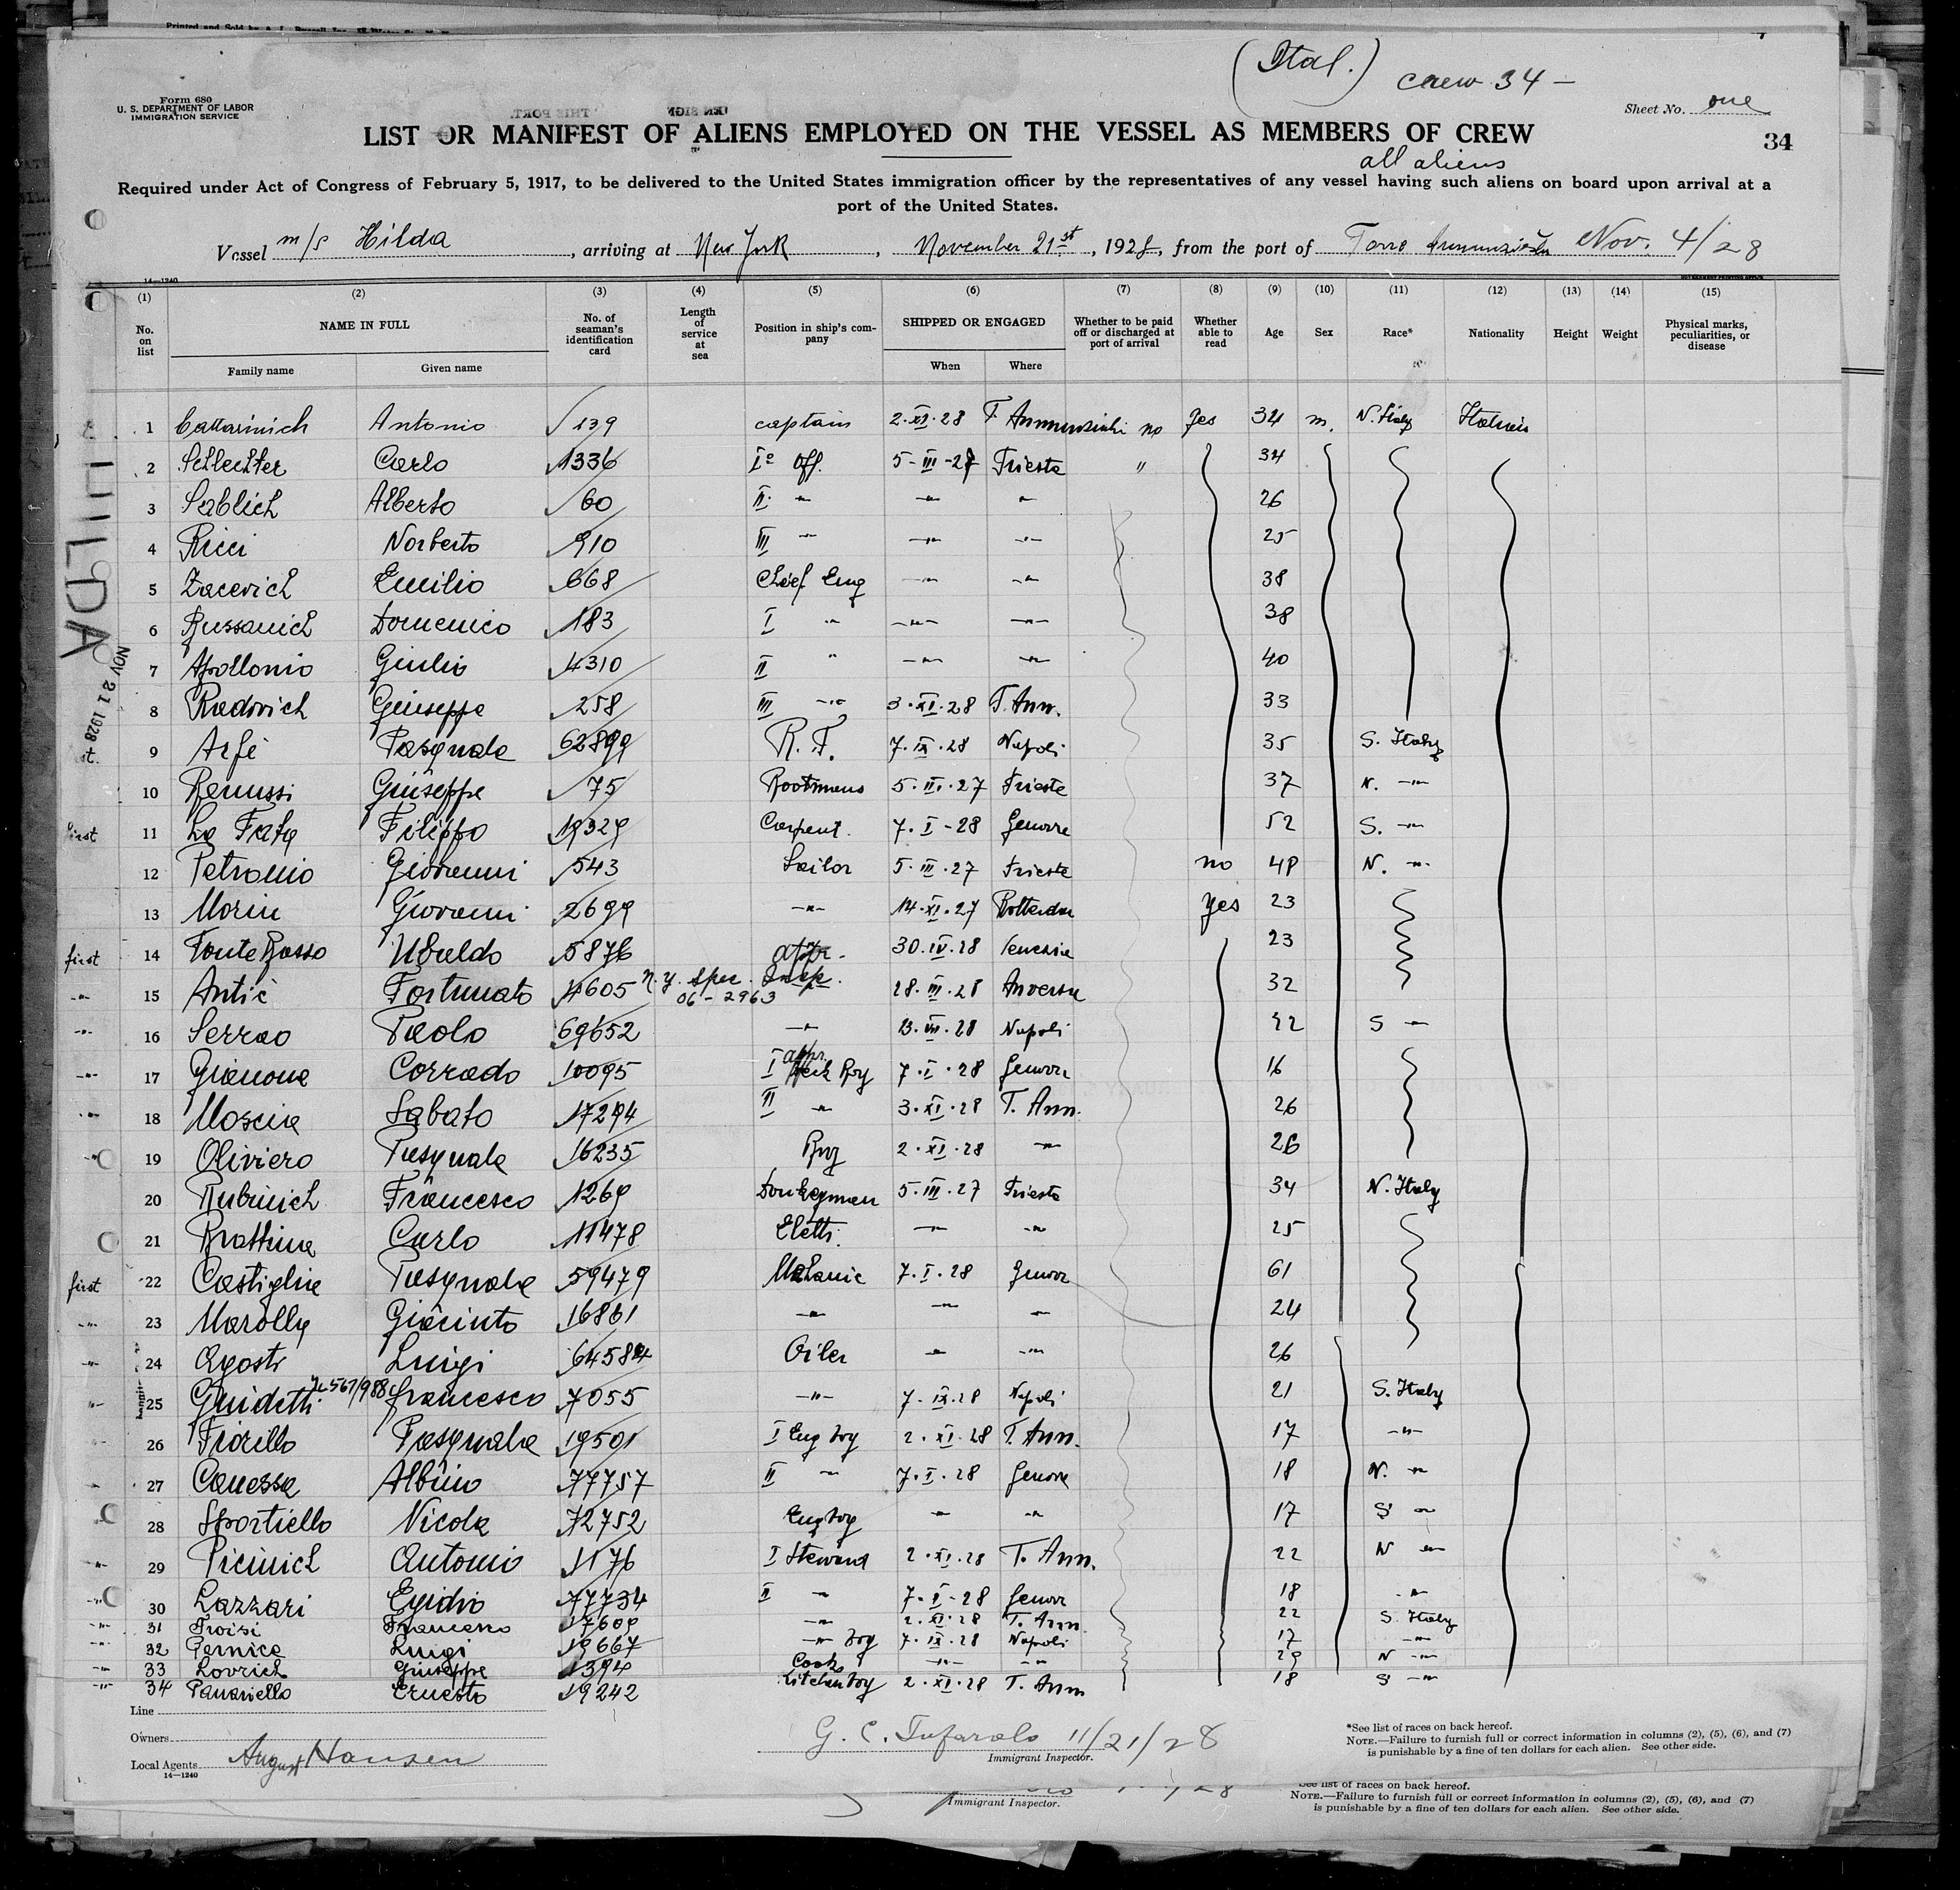 (Ital.) crew 34 —
Form 680
U. S. DEPARTMENT OF LABOR
IMMIGRATION SERVICE
Sheet No. one
LIST OR MANIFEST OF ALIENS EMPLOYED ON THE VESSEL AS MEMBERS OF CREW
34
all aliens
Required under Act of Congress of February 5, 1917, to be delivered to the United States immigration officer by the representatives of any vessel having such aliens on board upon arrival at a
port of the United States.
Vessel m/s Hilda, arriving at New York, November 21st, 1928, from the port of Torre Nov. 4/28
14—1240
(1) (2) (3) (4) (5) (6) (7) (8) (9) (10) (11) (12) (13) (14) (15)
No. on list NAME IN FULL No. of seaman's identification card Length of service at sea Position in ship's company SHIPPED OR ENGAGED Whether to be paid off or discharged at port of arrival Whether able to read Age Sex Race* Nationality Height Weight Physical marks, peculiarities, or disease
Family name Given name When Where
HILDA
NOV 21 1928
1 Cattarinich Antonio 139 captain 2·XI·28 no yes 34 m. N. Italy
2 Schlechter Carlo 1336 I° off. 5-III-27 Trieste " 34
3 Sablich Alberto 60 II —"— —"— —"— 26
4 Ricci Norberto 910 III —"— —"— —"— 25
5 Zacevich Emilio 668 Chief Eng —"— —"— 38
6 Russanich Domenico 183 I " —"— —"— 38
7 Apollonio Giulio 4310 II " —"— —"— 40
8 Radovich Giuseppe 258 III —"— 3·XI·28 T. Ann. 33
9 Arfè Pasquale 62899 R. T. 7·IX·28 Napoli 35 S. Italy
10 Renussi Giuseppe 75 5·III·27 Trieste 37 N. —"—
first 11 La Fata Filippo 19329 Carpent. 7·I-28 Genova 52 S. —"—
12 Petronio Giovanni 543 Sailor 5·III·27 Trieste no 48 N. —"—
13 Morin Giovanni 2699 —"— 14·XI·27 Rotterdam yes 23
first 14 Fonte Rosso Ubaldo 5876 appr. 30·IV·28 Venezia 23
—"— 15 Antic Fortunato 4605 N.Y. Insp. 06-2963 28·III·28 Anversa 32
—"— 16 Serrao Paolo 69652 —"— 13·VII·28 Napoli 22 S —"—
—"— 17 Gianone Corrado 10095 I appr. Deck Boy 7·I·28 Genova 16
—"— 18 Moscia Sabato 17294 II —"— 3·XI·28 T. Ann. 26
—"— 19 Oliviero Pasquale 16235 Boy 2·XI·28 —"— 26
20 Rubinich Francesco 1269 Donkeyman 5·III·27 Trieste 34 N. Italy
21 Brattina Carlo 11478 Elettr. —"— —"— 25
first 22 Castiglia Pasquale 59479 Mechanic 7·I·28 Genova 61
—"— 23 Marolla Giacinto 16861 —"— —"— —"— 24
—"— 24 Agosti Luigi 64584 Oiler —"— —"— 26
—"— 25 Guidetti Francesco 7055 —"— 7·IX·28 Napoli 21 S. Italy
—"— 26 Fiorillo Pasquale 19501 I Eng boy 2·XI·28 T. Ann. 17 —"—
27 Canessa Albino 77757 II —"— 7·I·28 Genova 18 N. —"—
28 Sportiello Nicola 72752 Eng boy —"— —"— 17 S —"—
—"— 29 Picinich Antonio 1176 I Steward 2·XI·28 T. Ann. 22 N —"—
—"— 30 Lazzari Egidio 77734 II —"— 7·I-28 Genova 18 —"—
—"— 31 Troisi Francesco 17609 —"— 2·XI·28 T. Ann. 22 S. Italy
—"— 32 Pernice Luigi 19667 —"— boy 7·IX·28 Napoli 17 —"—
—"— 33 Lovrich Giuseppe 1394 Cook —"— —"— 29 N —"—
—"— 34 Panariello Ernesto 19242 Kitchen boy 2·XI·28 T. Ann 18 S —"—
Line
Owners
Local Agents August Hansen
14—1240
G. C. Tufarolo 11/21/28
Immigrant Inspector.
*See list of races on back hereof.
NOTE.—Failure to furnish full or correct information in columns (2), (5), (6), and (7)
is punishable by a fine of ten dollars for each alien. See other side.
Immigrant Inspector.
*See list of races on back hereof.
NOTE.—Failure to furnish full or correct information in columns (2), (5), (6), and (7)
is punishable by a fine of ten dollars for each alien. See other side.